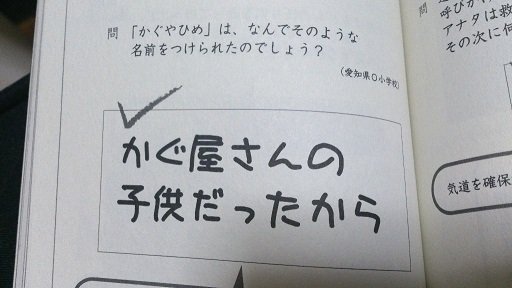 問 「かぐやひめ」は、なんでそのような
名前をつけられたのでしょう？
（愛知県O小学校）
かぐ屋さんの
子供だったから
問
呼びか
アナタは救
その次に何
気道を確保